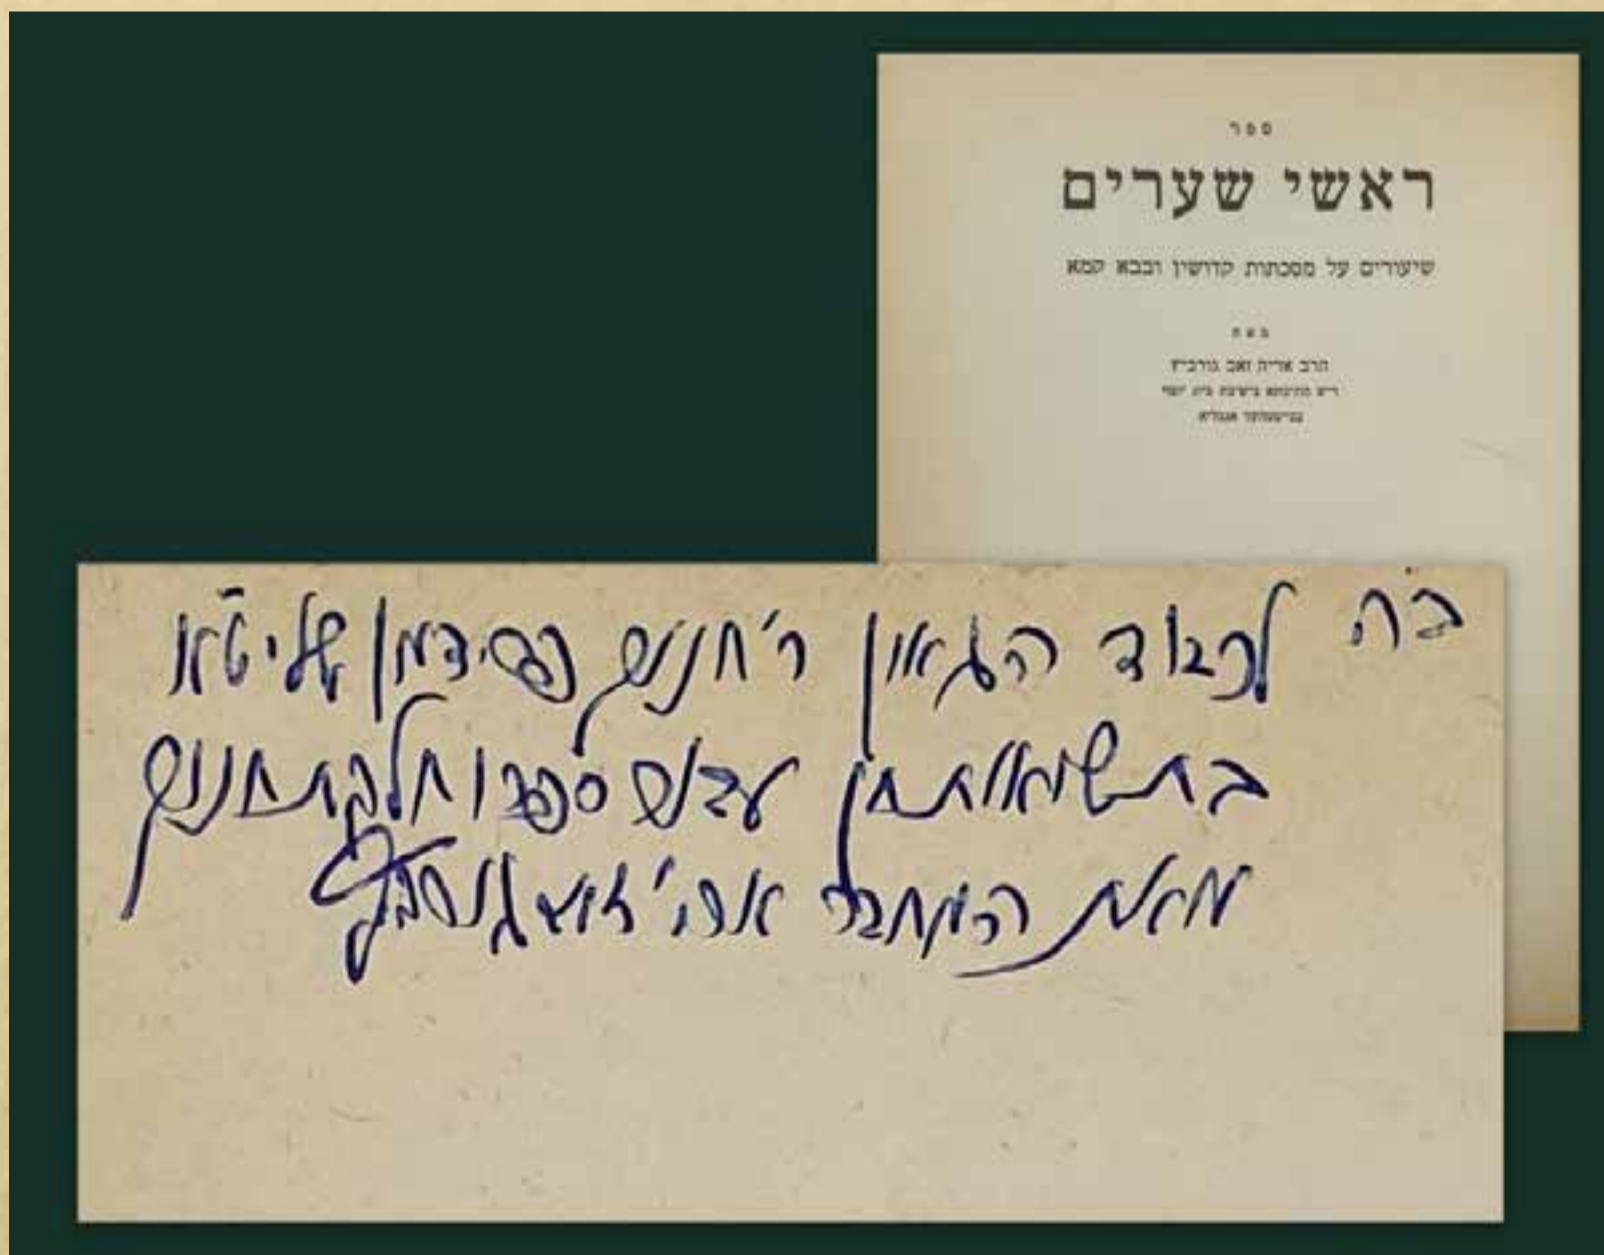 ספר
ראשי שערים
שיעורים על מסכתות קדושין ובבא קמא
מאת
הרב אריה זאב גורביץ
ריש מתיבתא בישיבת בית יוסף
בגייטסהעד אנגליא
ב"ה לכבוד הגאון ר' חנוך שליט"א
בתשואות חן עבור ספרו חלקת חנוך
מאת המחבר ארי' זאב גורביץ